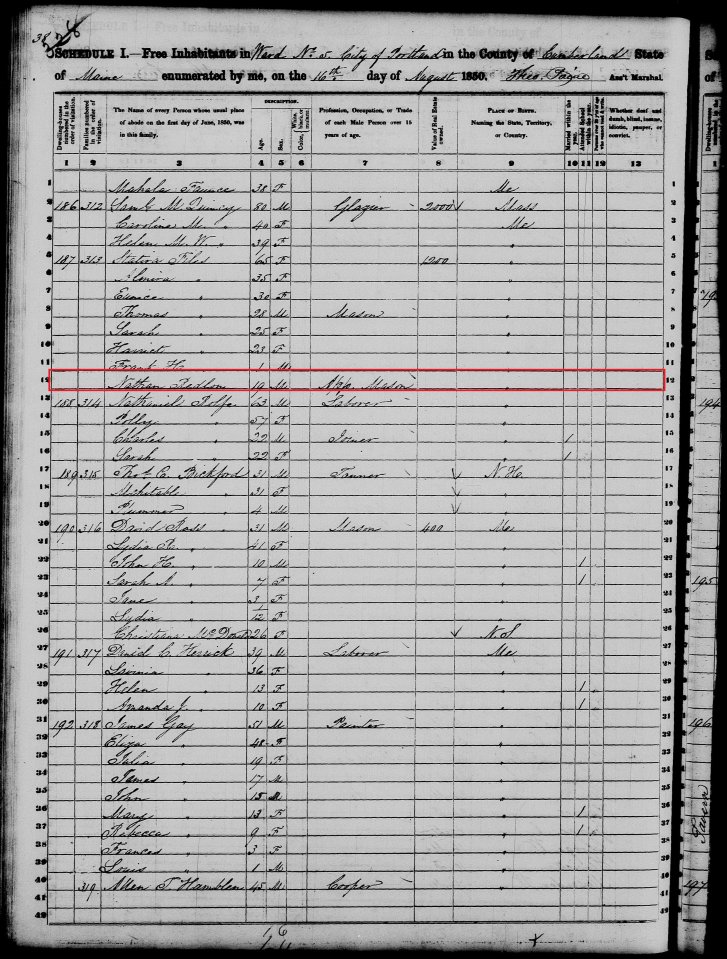 38
SCHEDULE I.—Free Inhabitants in Ward No 5. City of Portland in the County of Cumberland State
of Maine enumerated by me, on the 16th day of August 1850. Theo. Payne Ass't Marshal.
DESCRIPTION.
Dwelling-houses numbered in the order of visitation.
Families numbered in the order of visitation.
The Name of every Person whose usual place of abode on the first day of June, 1850, was in this family.
Age.
Sex.
Color, White, black, or mulatto.
Profession, Occupation, or Trade of each Male Person over 15 years of age.
Value of Real Estate owned.
PLACE OF BIRTH. Naming the State, Territory, or Country.
Married within the year.
Attended School within the year.
Whether deaf and dumb, blind, insane, idiotic, pauper, or convict.
1 2 3 4 5 6 7 8 9 10 11 12 13
1 Mahala 38 F Me 1
2 186 312 Saml M. Quincy 80 M Glazier 2000 Mass 2
3 Caroline M. " 40 F Me 3
4 Helen M. W. " 39 F " 4
5 187 313 Statira Files 65 F 1200 " 5
6 Almira " 35 F " 6
7 Eunice " 30 F " 7
8 Thomas " 28 M Mason " 8
9 Sarah " 25 F " 9
10 Harriet " 23 F " 10
11 Frank H. " 1 M " 11
12 Nathan Redlon 19 M App. Mason " 12
13 188 314 Nathaniel Rolfe 63 M Laborer " 13
14 Polly " 57 F " 14
15 Charles " 22 M Joiner " 1 15
16 Sarah " 22 F " 1 16
17 189 315 Thos. C. Bickford 31 M Tanner N.H. 17
18 Mehitable " 31 F " 18
19 Plummer " 4 M " 19
20 190 316 David Ross 31 M Mason 400 Me 20
21 Lydia R. " 41 F " 21
22 John H. " 10 M " 1 22
23 Sarah A. " 7 F " 1 23
24 Jane " 3 F " 24
25 Lydia " 1/12 F " 25
26 Christiana 26 F N.S. 26
27 191 317 Daniel C. Herrick 39 M Laborer Me 27
28 Lavinia " 36 F " 28
29 Helen " 13 F " 1 29
30 Amanda J. " 10 F " 1 30
31 192 318 James Gay 51 M Painter " 31
32 Eliza " 48 F " 32
33 Julia " 19 F " 33
34 James " 17 M " 34
35 John " 15 M " 35
36 Mary " 13 F " 1 36
37 Rebecca " 9 F " 1 37
38 Frances " 3 F " 38
39 Louis " 1 M " 39
40 319 Allen T. Hamblen 45 M Cooper " 40
41 41
42 42
194
195
196
197